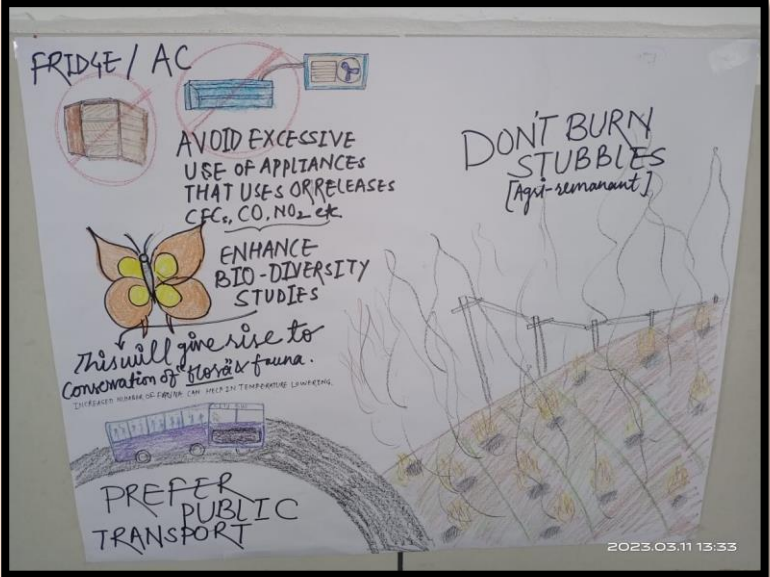 FRIDGE / AC
AVOID EXCESSIVE
USE OF APPLIANCES
THAT USES OR RELEASES
CFCs, CO, NO2 etc.
ENHANCE
BIO-DIVERSITY
STUDIES
This will give rise to
Conservation of "flora" & fauna.
INCREASED NUMBER OF CAN HELP IN TEMPERATURE LOWERING.
PREFER
PUBLIC
TRANSPORT
DON'T BURN
STUBBLES
[Agri-remanant]
2023.03.11 13:33